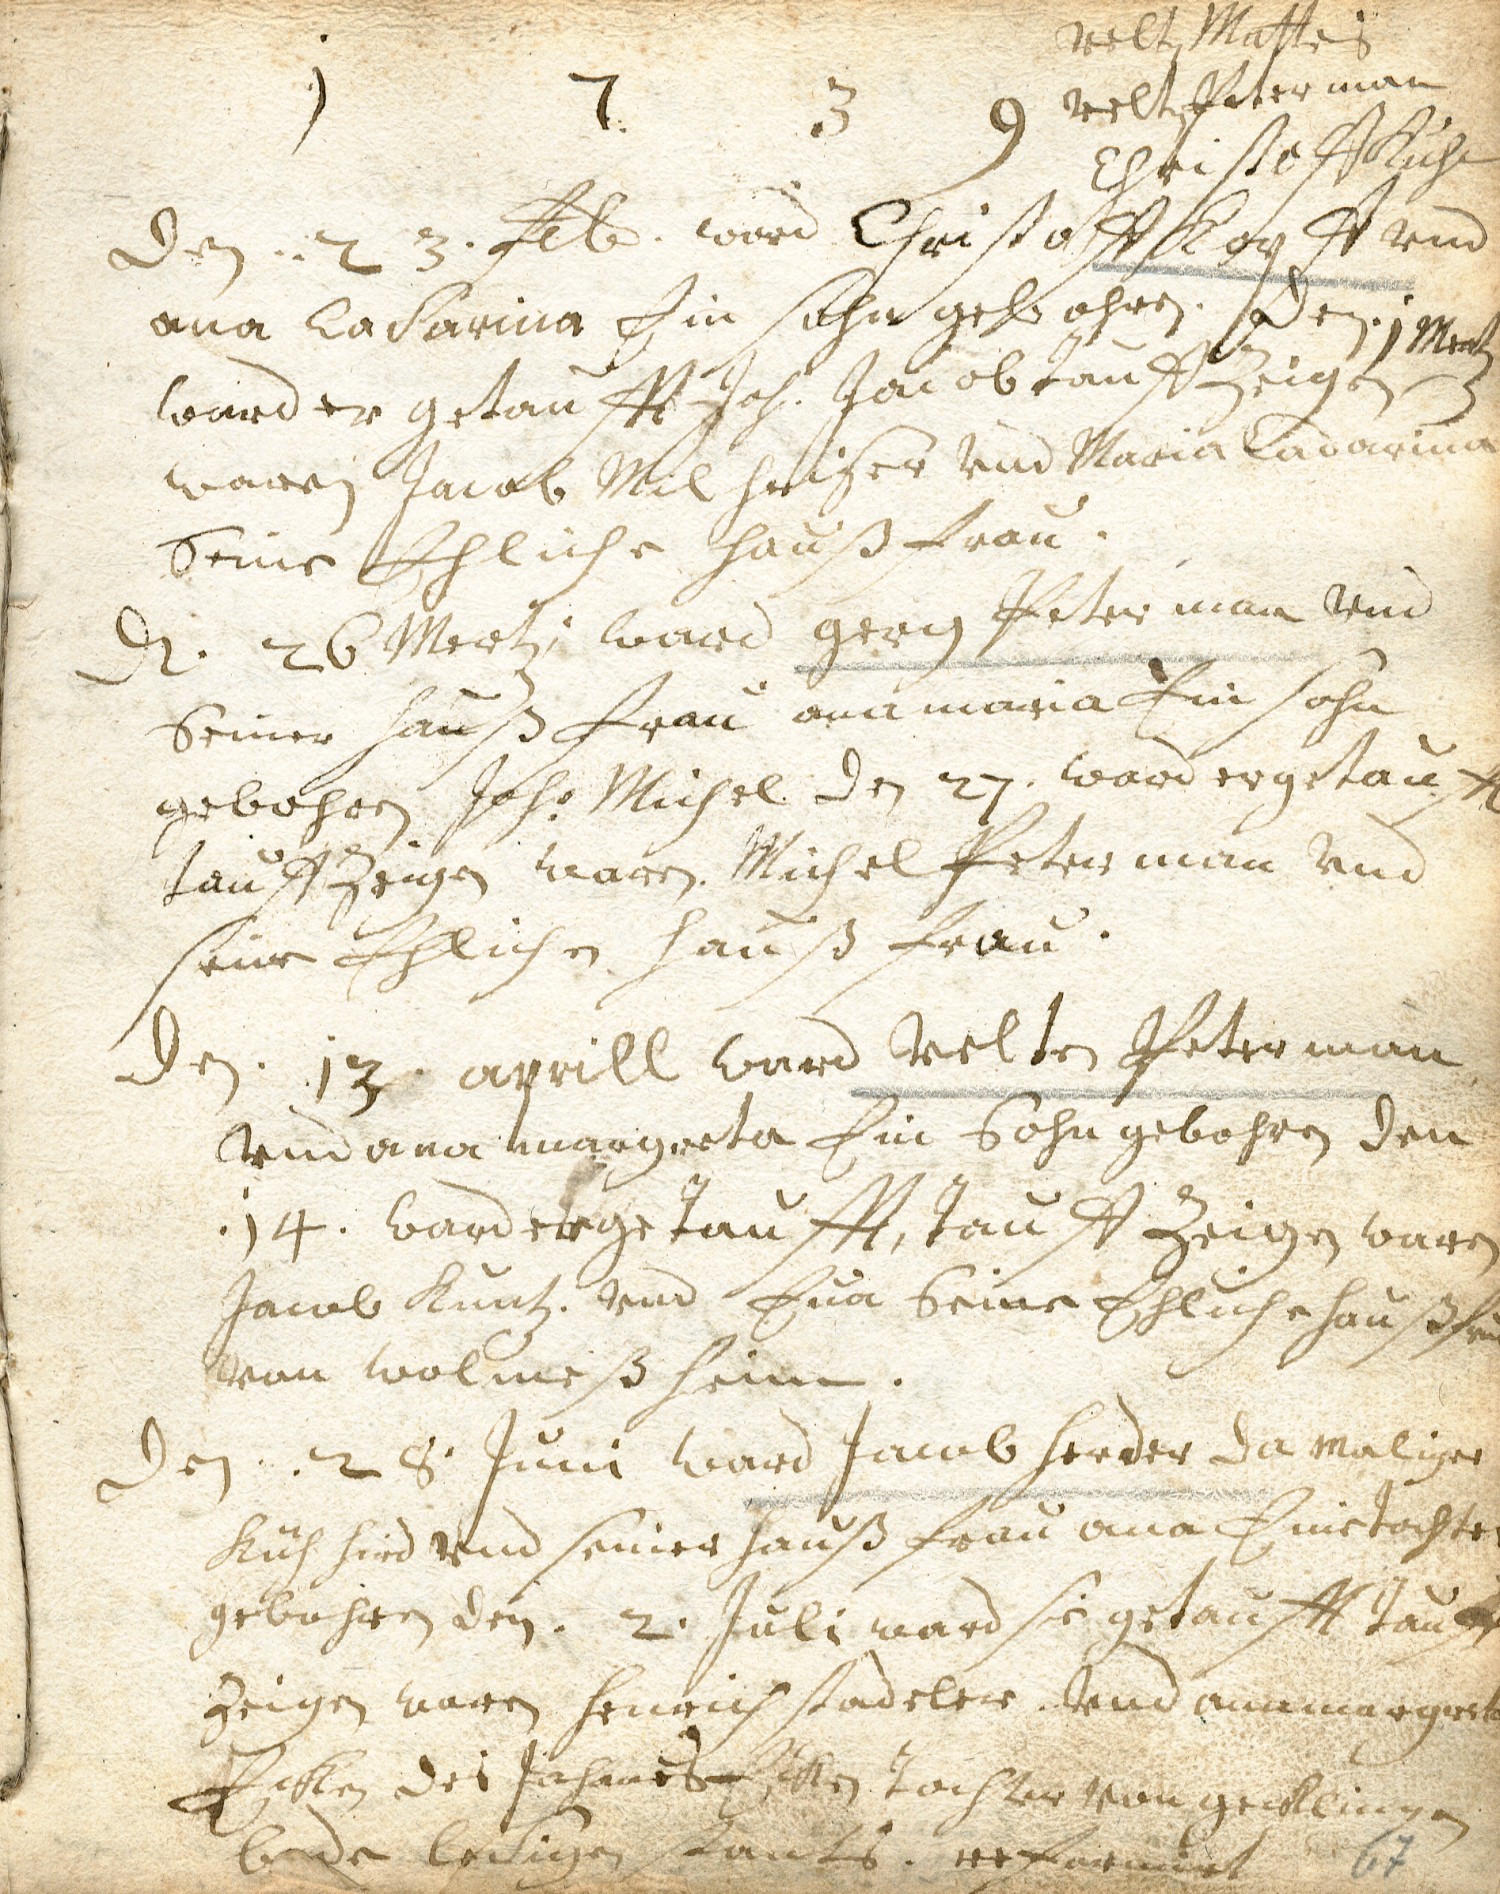 velt Matteis
1 7 3 9
velt Peterman
Christoff Kuhn
Den .. 23. Feb. ward Christoff Kopff vnd
ana Catarina Ein sohn gebohren. Den. 1 Mertz
ward er getaufft Joh. Jacob tauff Zeigen
waren Jacob Milheiser vnd Maria Cadarina
Seine Ehliche hauß frau.
D. 26 Mertz ward gerg Peterman vnd
Seiner hauß frau anamaria Ein sohn
gebohren Joh: Michel den 27. ward er getaufft
tauff Zeigen waren. Michel Peterman vnd
seine Ehlichen hauß frau.
Den. 13. aprill ward velten Peterman
vnd ana margreta Ein Sohn gebohren den
.14. ward er getaufft, tauff Zeigen waren
Jacob Kuntz. vnd Eua Seine Ehliche haußfrau
von wolmeßheim.
Den .. 28. Juni ward Jacob herder da maliger
Kuh hird vnd seiner hauß frau ana Eine tochter
gebohren den. 2. Juli ward sie getaufft tauff
Zeigen waren henrich stadeler. vnd anamargreta
des Johanes tochter von gecklingen
bede ledigen stants. reformirt
67